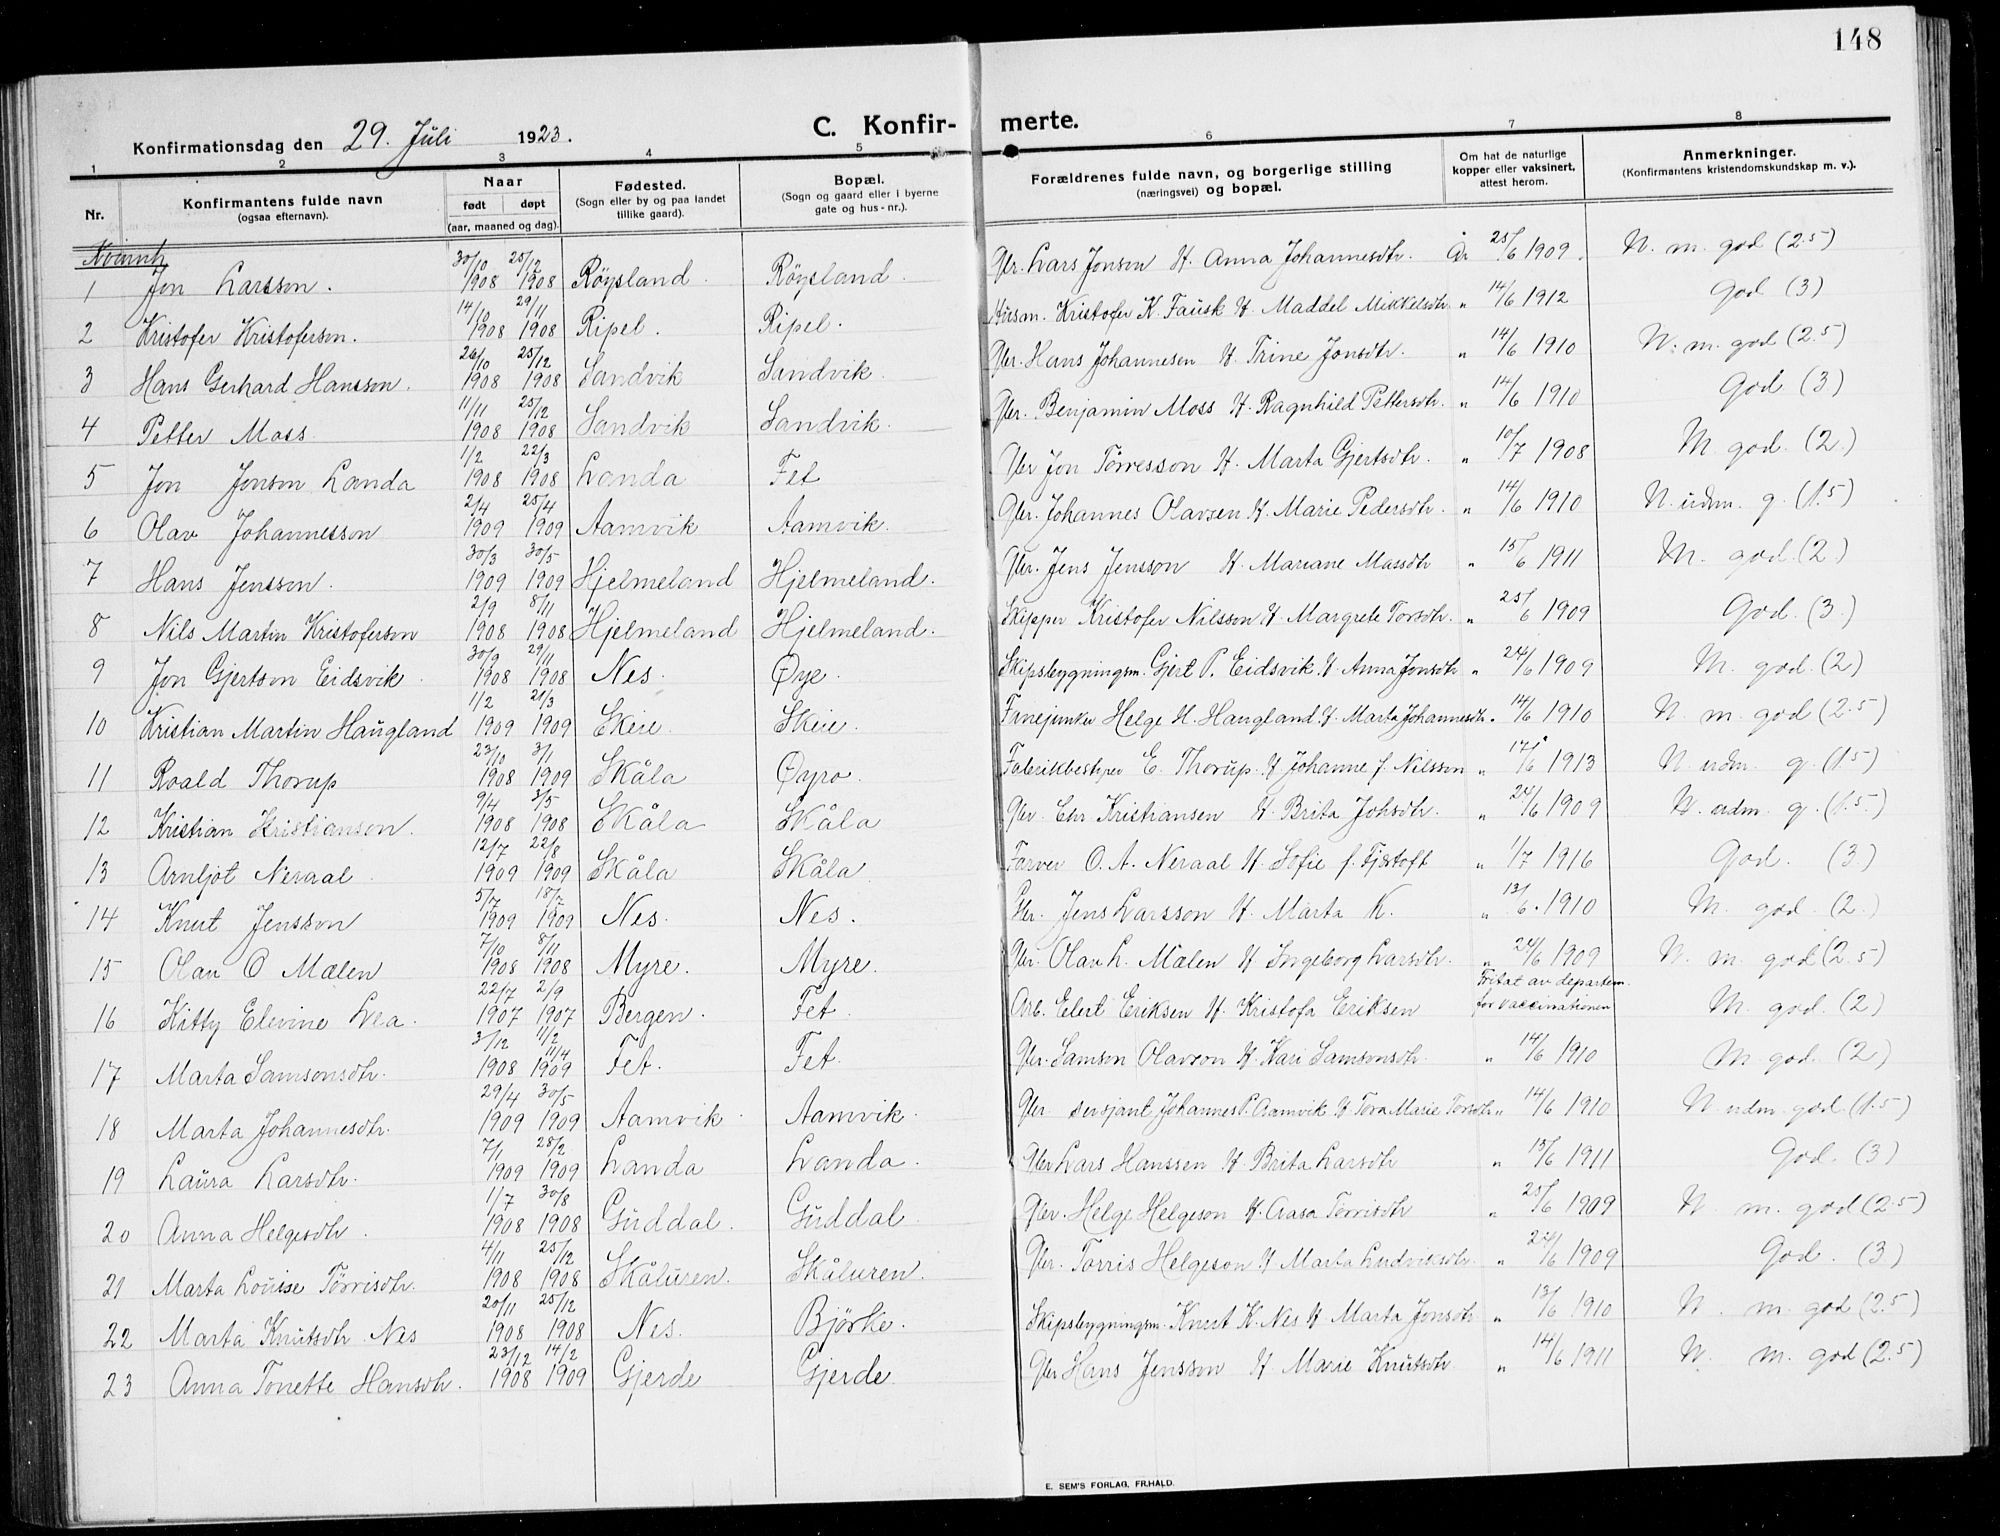 148
C. Konfirmerte.
Konfirmationsdag den 29. Juli 1923.
1 2 3 4 5 6 7 8
Nr. Konfirmantens fulde navn (ogsaa efternavn). Naar født døpt (aar, maaned og dag). Fødested. (Sogn eller by og paa landet tillike gaard). Bopæl. (Sogn og gaard eller i byerne gate og hus-nr.). Forældrenes fulde navn, og borgerlige stilling (næringsvei) og bopæl. Om hat de naturlige kopper eller vaksinert, attest herom. Anmerkninger. (Konfirmantens kristendomskundskap m. v.).
1 Jon Larsson. 30/10 1908 25/12 1908 Röysland. Röysland. Gbr. Lars Jonson H. Anna Johannesdtr. År 25/6 1909. N. m. god (2.5)
2 Kristofer Kristoferson. 14/10 1908 29/11 1908 Ripel. Ripel. Husm. Kristofer K. Fausk H. Maddel Mikkelsdtr. " 14/6 1912 God (3)
3 Hans Gerhard Hansson. 26/10 1908 25/12 1908 Sandvik Sandvik. Gbr. Hans Johannesen H. Trine Jonsdtr. " 14/6 1910 N. m. god (2.5)
4 Petter Moss 11/11 1908 25/12 1908 Sandvik Sandvik. Gbr. Benjamin Moss H. Ragnhild Pettersdtr. " 14/6 1910 God (3)
5 Jon Jonson Landa 1/2 1908 22/3 1908 Landa Fet Gbr Jon Tørresson H. Marta Gjertsdtr. " 10/7 1908 M. god. (2.)
6 Olav Johannesson 2/4 1909 25/4 1909 Aamvik Aamvik. Gbr. Johannes Olavsen H. Marie Pedersdtr. " 14/6 1910 N. udm. g. (1.5)
7 Hans Jensson. 30/3 1909 30/5 1909 Hjelmeland Hjelmeland. Gbr. Jens Jensson H. Mariane Massdtr " 15/6 1911 M. god. (2)
8 Nils Martin Kristoferson 2/9 1908 8/11 1908 Hjelmeland Hjelmeland. Skipper Kristofer Nilsson H. Margrete Torsdtr. " 25/6 1909 God. (3.)
9 Jon Gjertson Eidsvik. 30/9 1908 29/11 1908 Nes. Øye. Skipsbygningsm. Gjert P. Eidsvik. H. Anna Jonsdtr " 24/6 1909 M. god. (2)
10 Kristian Martin Haugland 1/2 1909 21/3 1909 Skeie Skeie. Fanejunker Helge H. Haugland H. Marta Johannesdtr. " 14/6 1910 N. m. god (2.5)
11 Roald Thorup 23/10 1908 3/1 1909 Skåla Øyro. Fabrikbestyrer E. Thorup. H Johanne f. Nilsson " 17/6 1913 N. udm. g. (1.5)
12 Kristian Kristianson. 9/4 1908 3/5 1908 Skåla Skåla Gbr. Chr Kristiansen H. Brita Johsdtr. " 24/6 1909 N. udm. g. (1.5.)
13 Arnljot Neraal 12/7 1909 22/8 1909 Skåla Skåla Farver O. A. Neraal H. Sofie f. Fjørtoft " 1/7 1916 God. (3)
14 Knut Jensson 5/7 1909 18/7 1909 Nes. Nes. Gbr. Jens Larsson H. Marta K. " 13/6. 1910 M. god. (2.)
15 Olav O Mælen 7/10 1908 8/11 1908 Myre. Myre. Gbr. Olav L. Mælen H Ingeborg Larsdtr. " 24/6 1909 N. m. god (2.5)
16 Kitty Elevine Lea. 22/7 1907 2/9 1907 Bergen. Fet. Arb. Elert Eriksen H. Kristofa Eriksen Fritat av departem. for vaccinationen M. god. (2)
17 Marta Samsonsdtr. 3/12 1908 11/2 11/4 1909 Fet. Fet. Gbr. Samson Olavson H. Kari Samsonsdtr. " 14/6 1910 M god. (2)
18 Marta Johannesdtr. 29/4 1909 30/5 1909 Aamvik. Aamvik. Gbr. sersjant Johannes P. Aamvik H Tora Marie Torsdtr " 14/6 1910 N udm. god. (1.5)
19 Laura Larsdtr. 7/1 1909 28/2 1909 Landa Landa. Gbr Lars Hanssen H. Brita Larsdtr " 15/6 1911 God. (3)
20 Anna Helgesdtr. 1/7 1908 30/8 1908 Guddal. Guddal. Gbr. Helge Helgeson H. Aasa Tørrisdtr " 25/6 1909 N. m. god (2.5)
21 Marta Louise Tørrisdtr. 4/11 1908 25/12 1908 Skåluren. Skåluren. Gbr. Torris Helgeson H Marta Ludviksdtr. " 24/6 1909 God. (3)
22 Marta Knutsdtr Nes 20/11 1908 25/12 1908 Nes. Björke. Skipsbygningsm. Knut K. Nes H Marta Jonsdtr " 13/6 1910 N. m. god (2.5)
23 Anna Tonette Hansdtr. 23/12 1908 14/2 1909 Gjerde Gjerde Gbr Hans Jensson H Marie Knutsdtr " 14/6 1911 N. m. god (2.5)
E. SEM'S FORLAG, FR.HALD.